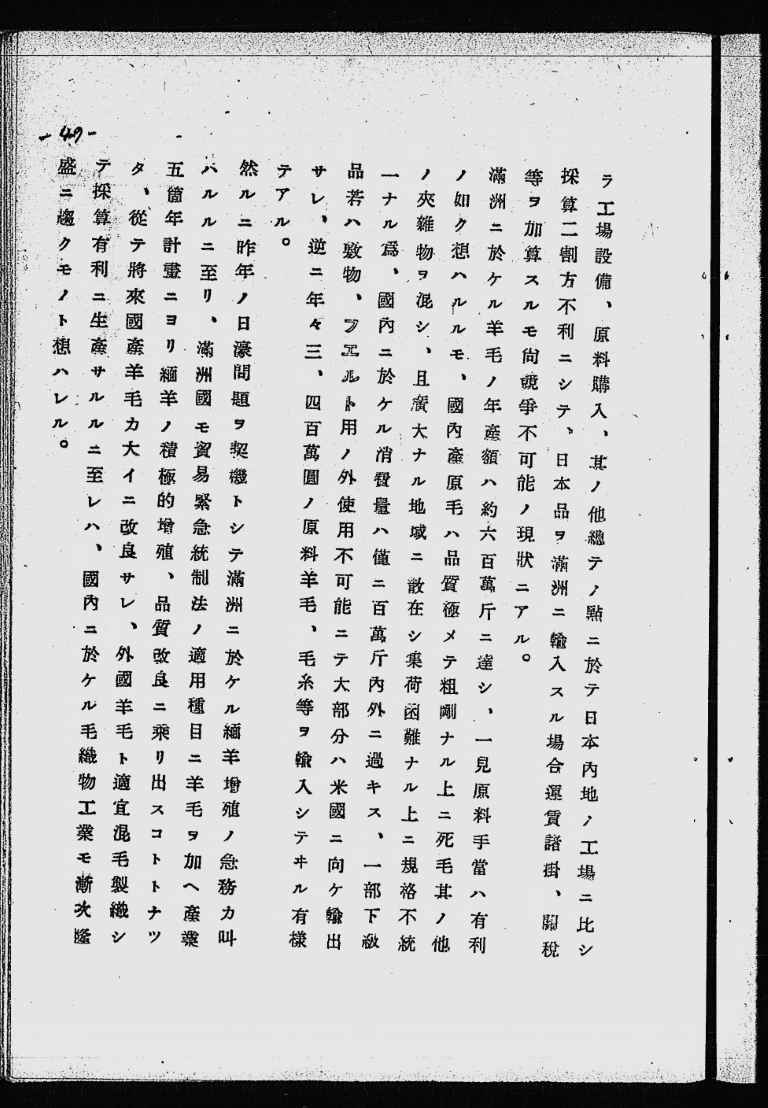 ラ工場設備、原料購入、其ノ他總テノ點ニ於テ日本內地ノ工場ニ比シ
採算二割方不利ニシテ、日本品ヲ滿洲ニ輸入スル場合運賃諸掛、關稅
等ヲ加算スルモ尙競爭不可能ノ現狀ニアル。
滿洲ニ於ケル羊毛ノ年產額ハ約六百萬斤ニ達シ、一見原料手當ハ有利
ノ如ク想ハルルモ、國內產原毛ハ品質極メテ粗剛ナル上ニ死毛其ノ他
ノ夾雜物ヲ混シ、且廣大ナル地域ニ散在シ集荷困難ナル上ニ規格不統
一ナル爲、國內ニ於ケル消費量ハ僅ニ百萬斤內外ニ過キス、一部下級
品若ハ敷物、フエルト用ノ外使用不可能ニテ大部分ハ米國ニ向ケ輸出
サレ、逆ニ年々三、四百萬圓ノ原料羊毛、毛糸等ヲ輸入シテヰル有樣
テアル。
然ルニ昨年ノ日濠問題ヲ契機トシテ滿洲ニ於ケル緬羊增殖ノ急務カ叫
ハルルニ至リ、滿洲國モ貿易緊急統制法ノ適用種目ニ羊毛ヲ加ヘ產業
五箇年計畫ニヨリ緬羊ノ積極的增殖、品質改良ニ乘リ出スコトトナツ
タ、從テ將來國產羊毛カ大イニ改良サレ、外國羊毛ト適宜混毛製織シ
テ採算有利ニ生產サルルニ至レハ、國內ニ於ケル毛織物工業モ漸次隆
盛ニ趨クモノト想ハレル。
-49-